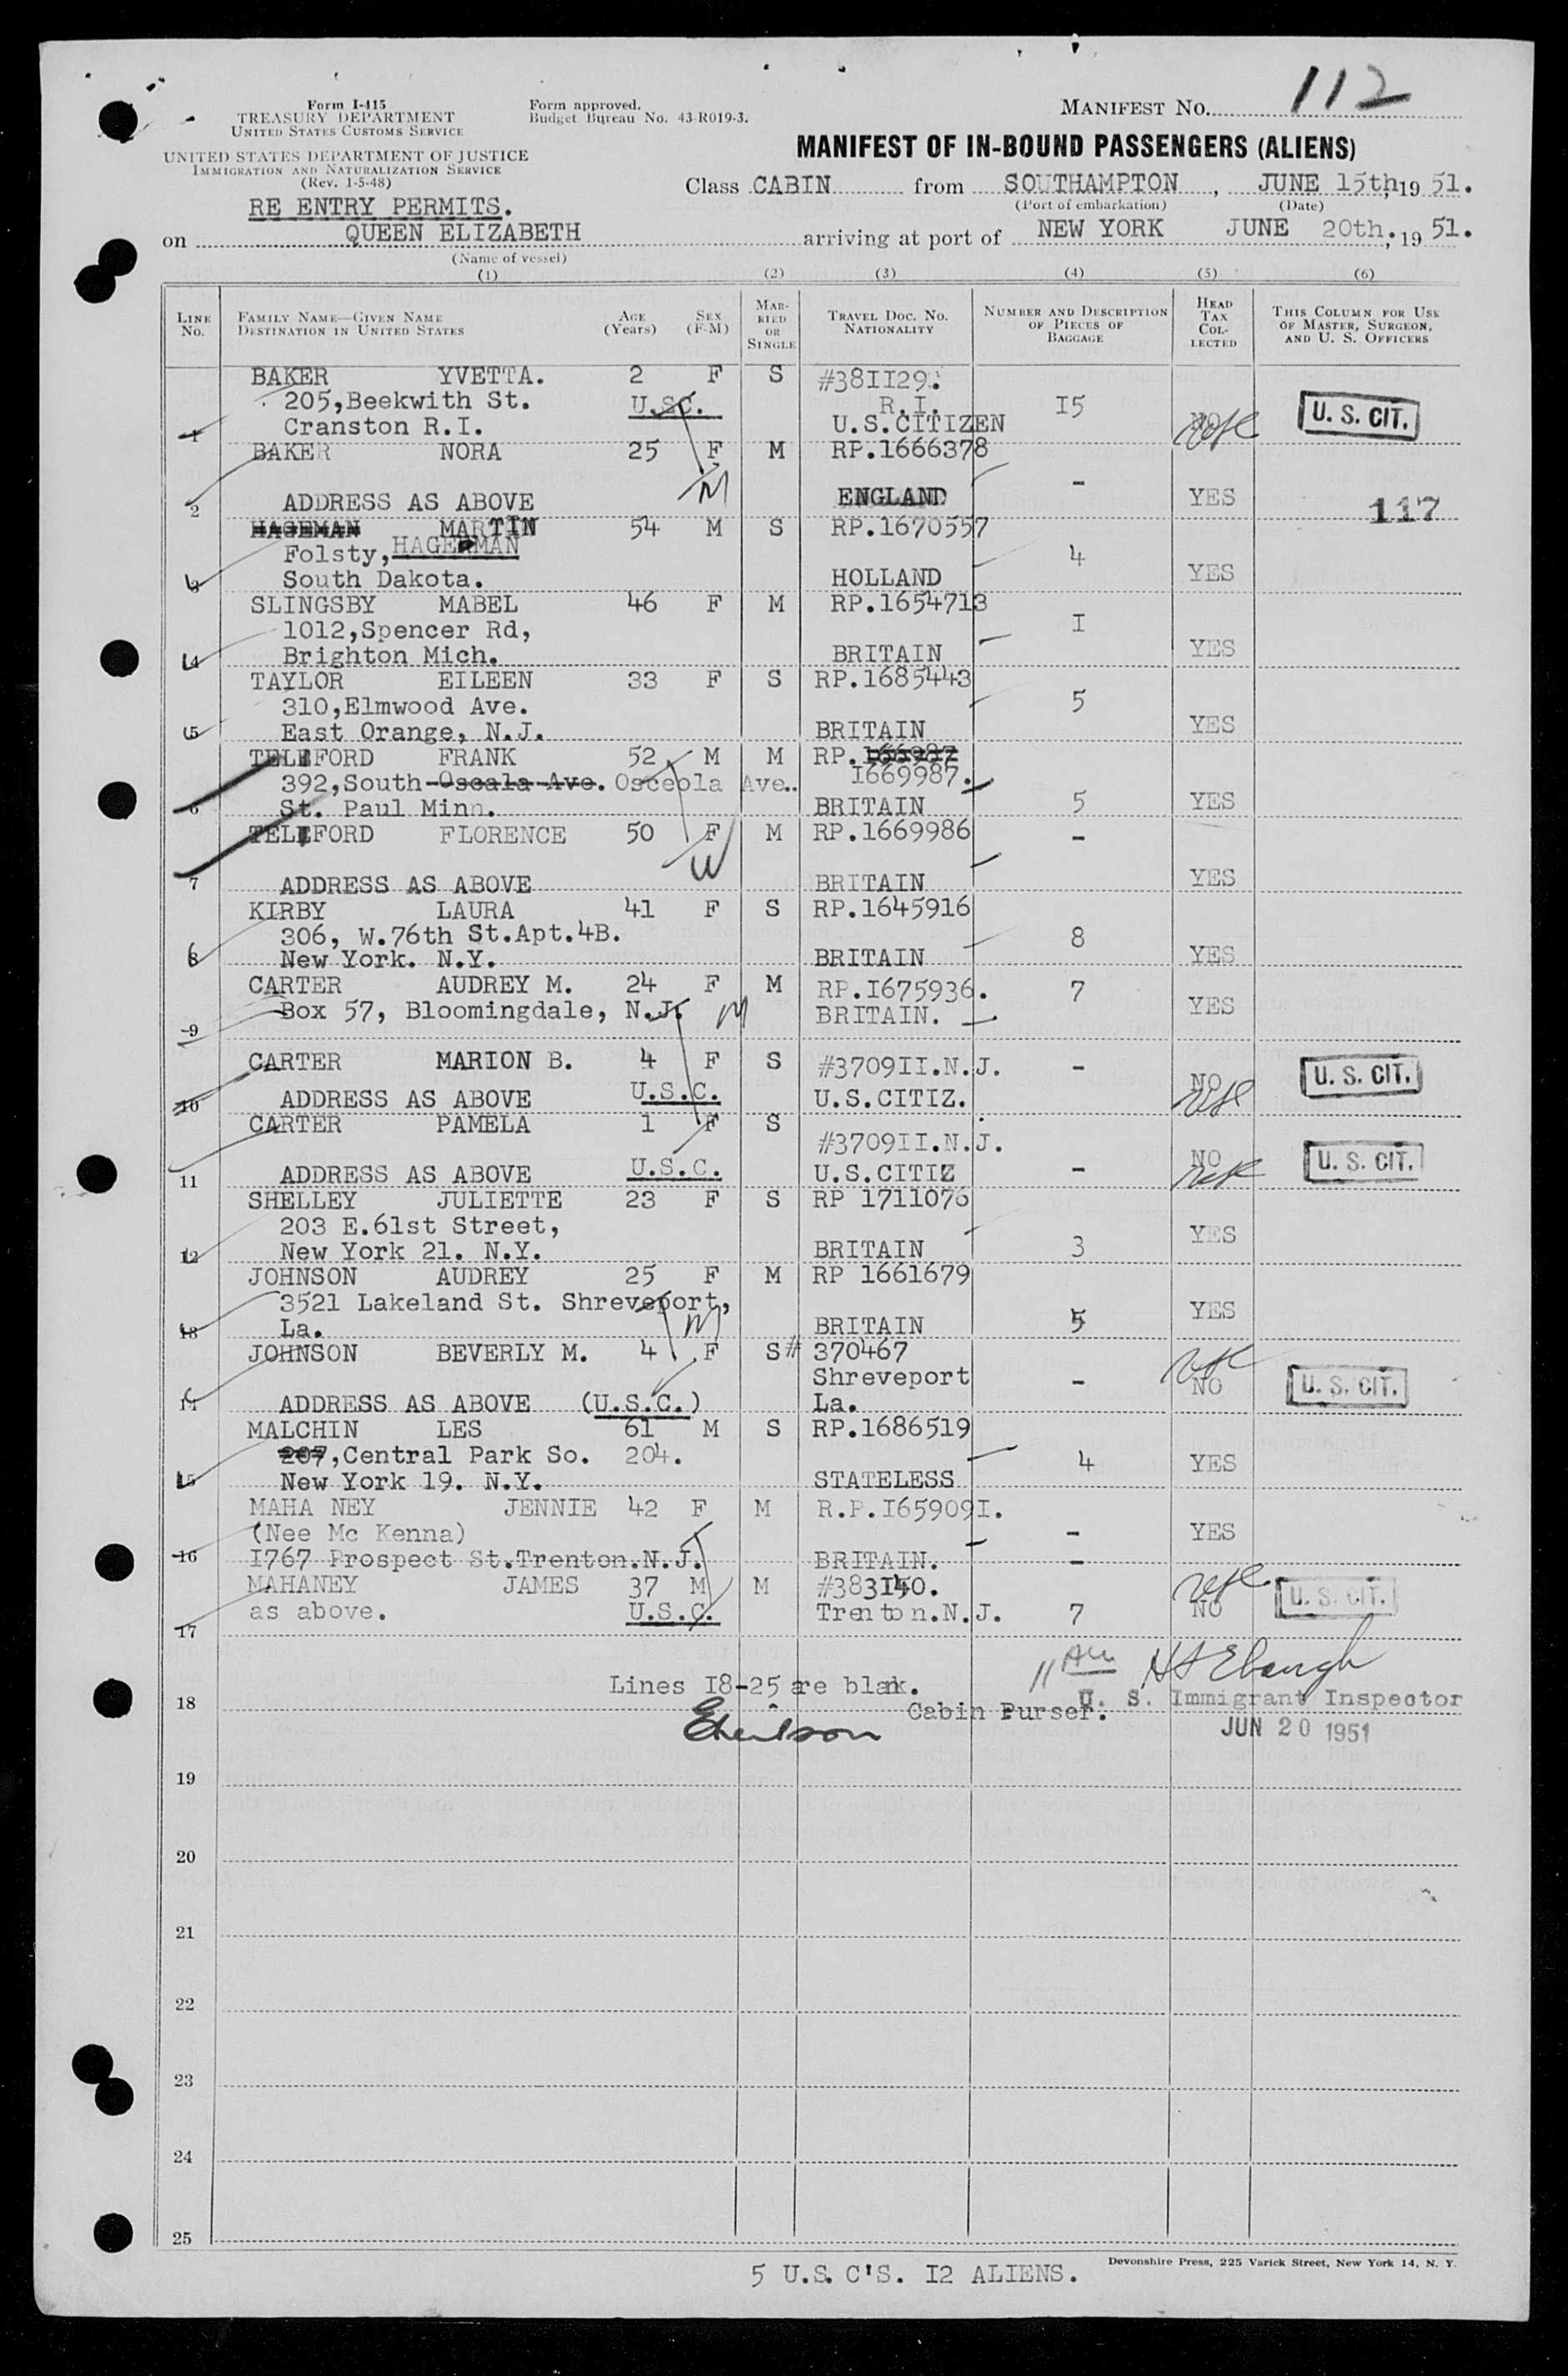 Form I-415
TREASURY DEPARTMENT
UNITED STATES CUSTOMS SERVICE
UNITED STATES DEPARTMENT OF JUSTICE
IMMIGRATION AND NATURALIZATION SERVICE
(Rev. 1-5-48)
Form approved.
Budget Bureau No. 43-R019-3.
MANIFEST No. 112
MANIFEST OF IN-BOUND PASSENGERS (ALIENS)
Class CABIN from SOUTHAMPTON, JUNE 15th, 19 51.
(Port of embarkation) (Date)
RE ENTRY PERMITS.
on QUEEN ELIZABETH arriving at port of NEW YORK JUNE 20th., 19 51.
(Name of vessel)
(1) (2) (3) (4) (5) (6)
LINE No. FAMILY NAME—GIVEN NAME DESTINATION IN UNITED STATES AGE (Years) SEX (F-M) MARRIED OR SINGLE TRAVEL DOC. NO. NATIONALITY NUMBER AND DESCRIPTION OF PIECES OF BAGGAGE HEAD TAX COLLECTED THIS COLUMN FOR USE OF MASTER, SURGEON, AND U. S. OFFICERS
BAKER YVETTA. 2 F S #38II29.
205,Beekwith St. U.SC. R.I. I5 U. S. CIT.
1 Cranston R.I. U.S.CITIZEN NO
BAKER NORA 25 F M RP.1666378
M -
2 ADDRESS AS ABOVE ENGLAND YES 117
HAGEMAN MARTIN 54 M S RP.1670557
Folsty, HAGERMAN 4
3 South Dakota. HOLLAND YES
SLINGSBY MABEL 46 F M RP.1654713
1012,Spencer Rd, I
4 Brighton Mich. BRITAIN YES
TAYLOR EILEEN 33 F S RP.1685443
310,Elmwood Ave. 5
5 East Orange, N.J. BRITAIN YES
TELFORD FRANK 52 M M RP.166987
392,South Oscala Ave. Osceola Ave.. I669987.
6 St. Paul Minn. BRITAIN 5 YES
TELFORD FLORENCE 50 F M RP.1669986 -
W
7 ADDRESS AS ABOVE BRITAIN YES
KIRBY LAURA 41 F S RP.1645916
306, W.76th St.Apt.4B. 8
8 New York. N.Y. BRITAIN YES
CARTER AUDREY M. 24 F M RP.I675936. 7
9 Box 57, Bloomingdale, N.J. M BRITAIN. YES
CARTER MARION B. 4 F S #3709II.N.J. - U. S. CIT.
10 ADDRESS AS ABOVE U.S.C. U.S.CITIZ. NO
CARTER PAMELA 1 F S
#3709II.N.J. NO U. S. CIT.
11 ADDRESS AS ABOVE U.S.C. U.S.CITIZ -
SHELLEY JULIETTE 23 F S RP 1711076
203 E.61st Street, YES
12 New York 21. N.Y. BRITAIN 3
JOHNSON AUDREY 25 F M RP 1661679
3521 Lakeland St. Shreveport, YES
13 La. M BRITAIN 5
JOHNSON BEVERLY M. 4 F S # 370467
Shreveport - NO U. S. CIT.
14 ADDRESS AS ABOVE (U.S.C.) La.
MALCHIN LES 61 M S RP.1686519
207,Central Park So. 204. 4 YES
15 New York 19. N.Y. STATELESS
MAHA NEY JENNIE 42 F M R.P.I65909I.
(Nee Mc Kenna) - YES
16 I767 Prospect St.Trenton.N.J. BRITAIN. -
MAHANEY JAMES 37 M M #383I40. U. S. CIT.
17 as above. U.S.C. Trenton.N.J. 7 NO
Lines I8-25 are blank.
18 Cabin Purser. U. S. Immigrant Inspector
JUN 20 1951
19
20
21
22
23
24
25
5 U.S. C'S. I2 ALIENS.
Devonshire Press, 225 Varick Street, New York 14, N. Y.